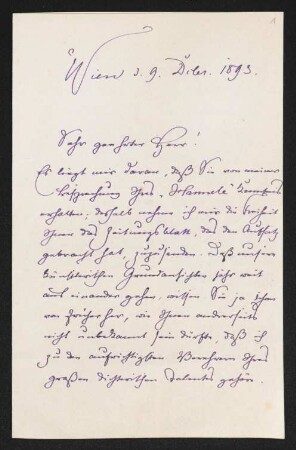 1
Wien d. 9. Dcbr. 1893.
Sehr geehrter Herr!
Es liegt mir daran, daß Sie von meiner
Besprechung Ihres „Hannele" Kenntnis
erhalten; deshalb nehme ich mir die Freiheit
Ihnen das Zeitungsblatt, das den Aufsatz
gebracht hat, zuzusenden. Daß unsere
künstlerischen Grundansichten sehr weit
aus einander gehen, wissen Sie ja schon
von früher her, wie Ihnen anderseits
nicht unbekannt sein dürfte, daß ich
zu den aufrichtigsten Verehrern Ihres
großen dichterischen Talentes gehöre.